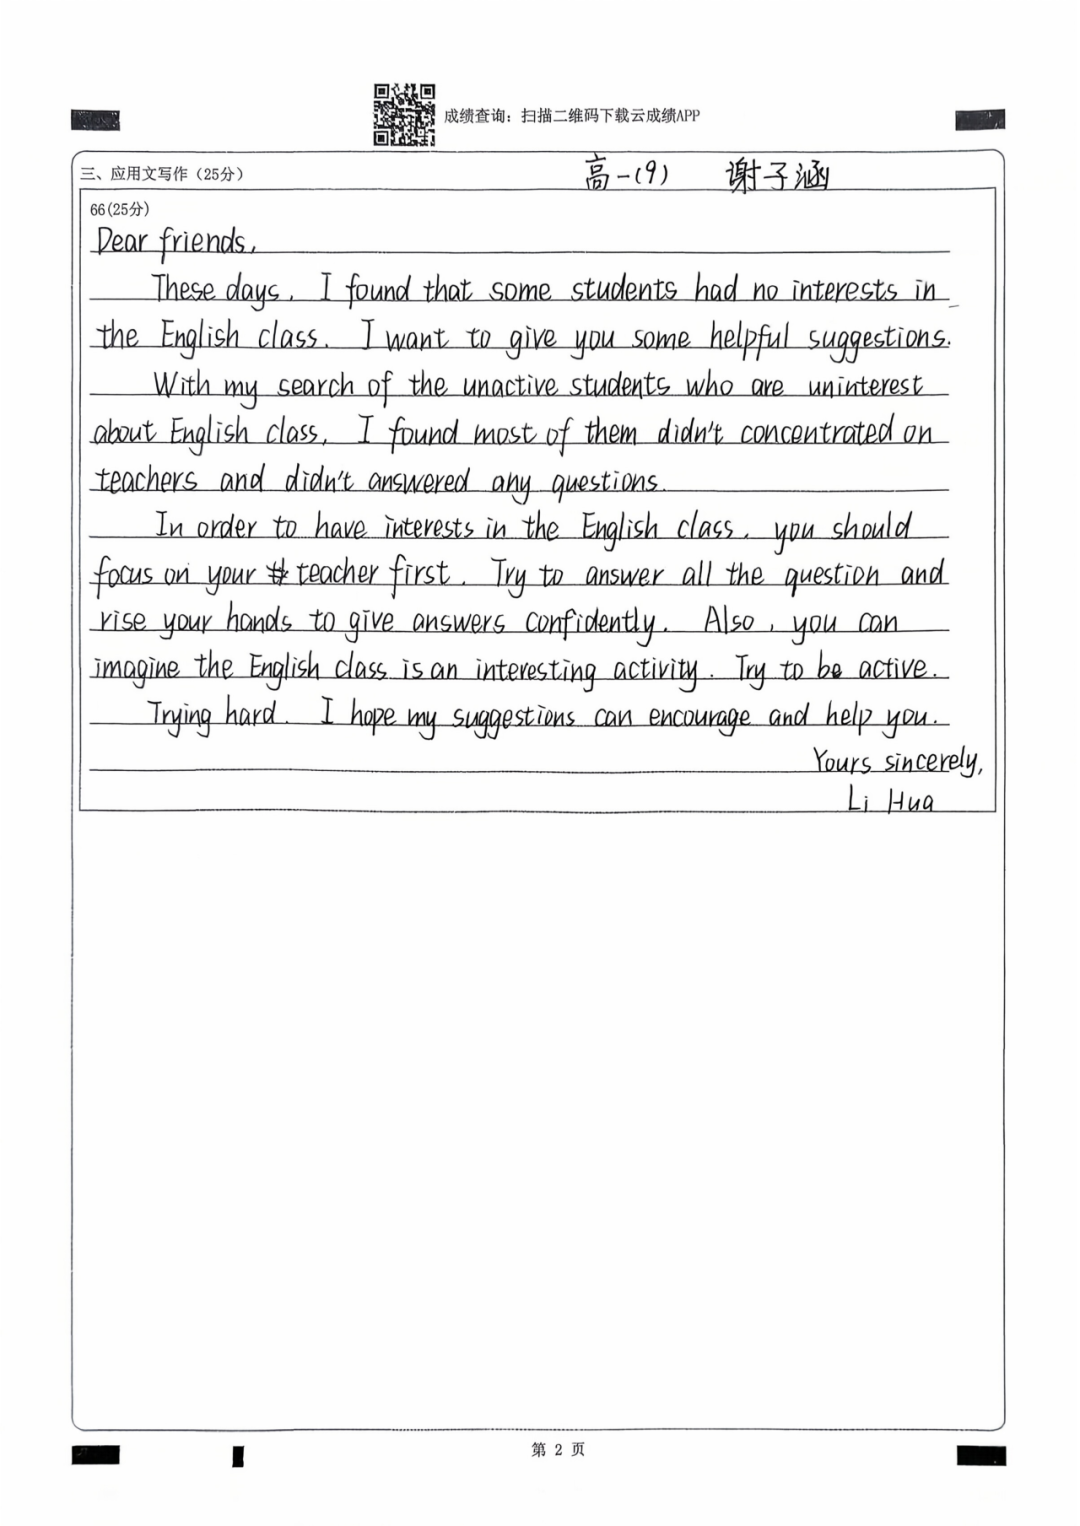 成绩查询：扫描二维码下载云成绩APP
三、应用文写作（25分） 高一(9) 谢子涵
66(25分)
Dear friends,
These days, I found that some students had no interests in
the English class. I want to give you some helpful suggestions.
With my search of the unactive students who are uninterest
about English class, I found most of them didn't concentrated on
teachers and didn't answered any questions.
In order to have interests in the English class, you should
focus on your teacher first. Try to answer all the question and
rise your hands to give answers confidently. Also, you can
imagine the English class is an interesting activity. Try to be active.
Trying hard. I hope my suggestions can encourage and help you.
Yours sincerely,
Li Hua
第 2 页